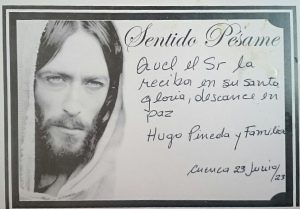 Sentido Pésame
Quel el Sr la
reciba en su santa
gloria, descance en
paz
Hugo Pineda y Familia
Cuenca 23 junio/23